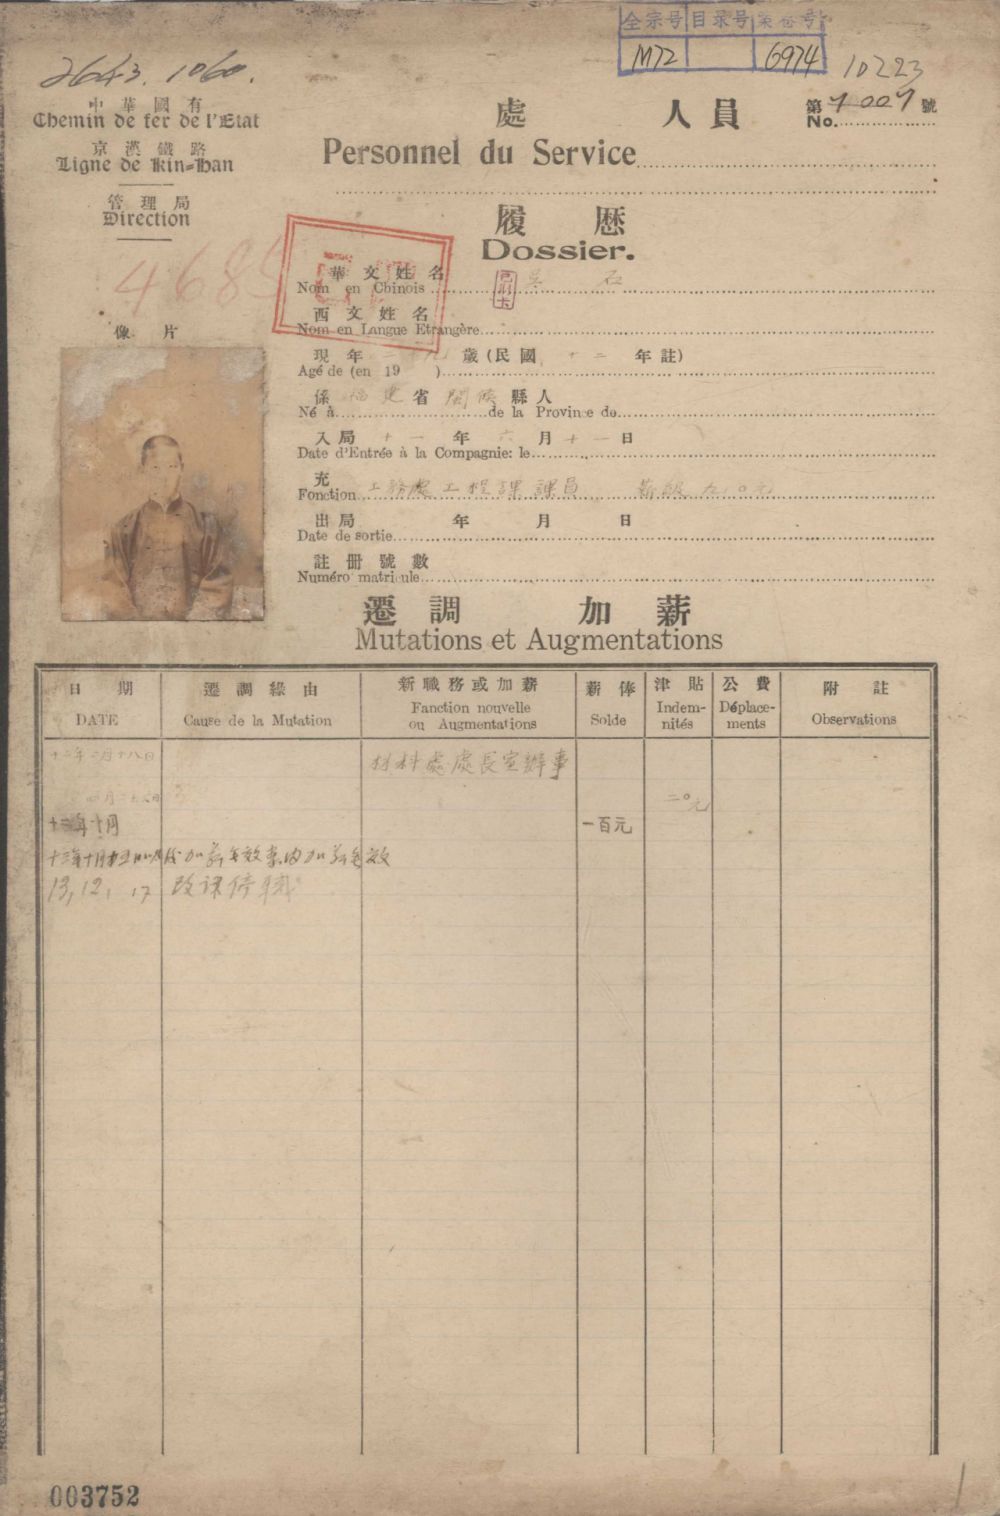 全宗号 目录号 案卷号
M72 6974
2643. 1060.
10223
中華國有
Chemin de fer de l'Etat
京漢鐵路
Ligne de Kin-Han
管理局
Direction
處 人員
Personnel du Service
第 號
No. 7007
履歷
Dossier.
4685
華文姓名 吳 石
Nom en Chinois
西文姓名
Nom en Langue Etrangère
像片
現年二十九歲(民國十二年註)
Agé de (en 19 )
係福建省閩侯縣人
Né à de la Province de
入局十一年六月十一日
Date d'Entrée à la Compagnie: le
充 工務處工程課課員 薪級九〇元
Fonction
出局 年 月 日
Date de sortie
註冊號數
Numéro matricule
遷調 加薪
Mutations et Augmentations
日期 遷調緣由 新職務或加薪 薪俸 津貼 公費 附註
DATE Cause de la Mutation Fanction nouvelle ou Augmentations Solde Indem-nités Déplace-ments Observations
十二年二月十八日 材料處處長室辦事
二〇元
十二年十月 一百元
加薪無效案內加薪無效
13, 12, 17 改課停職
003752